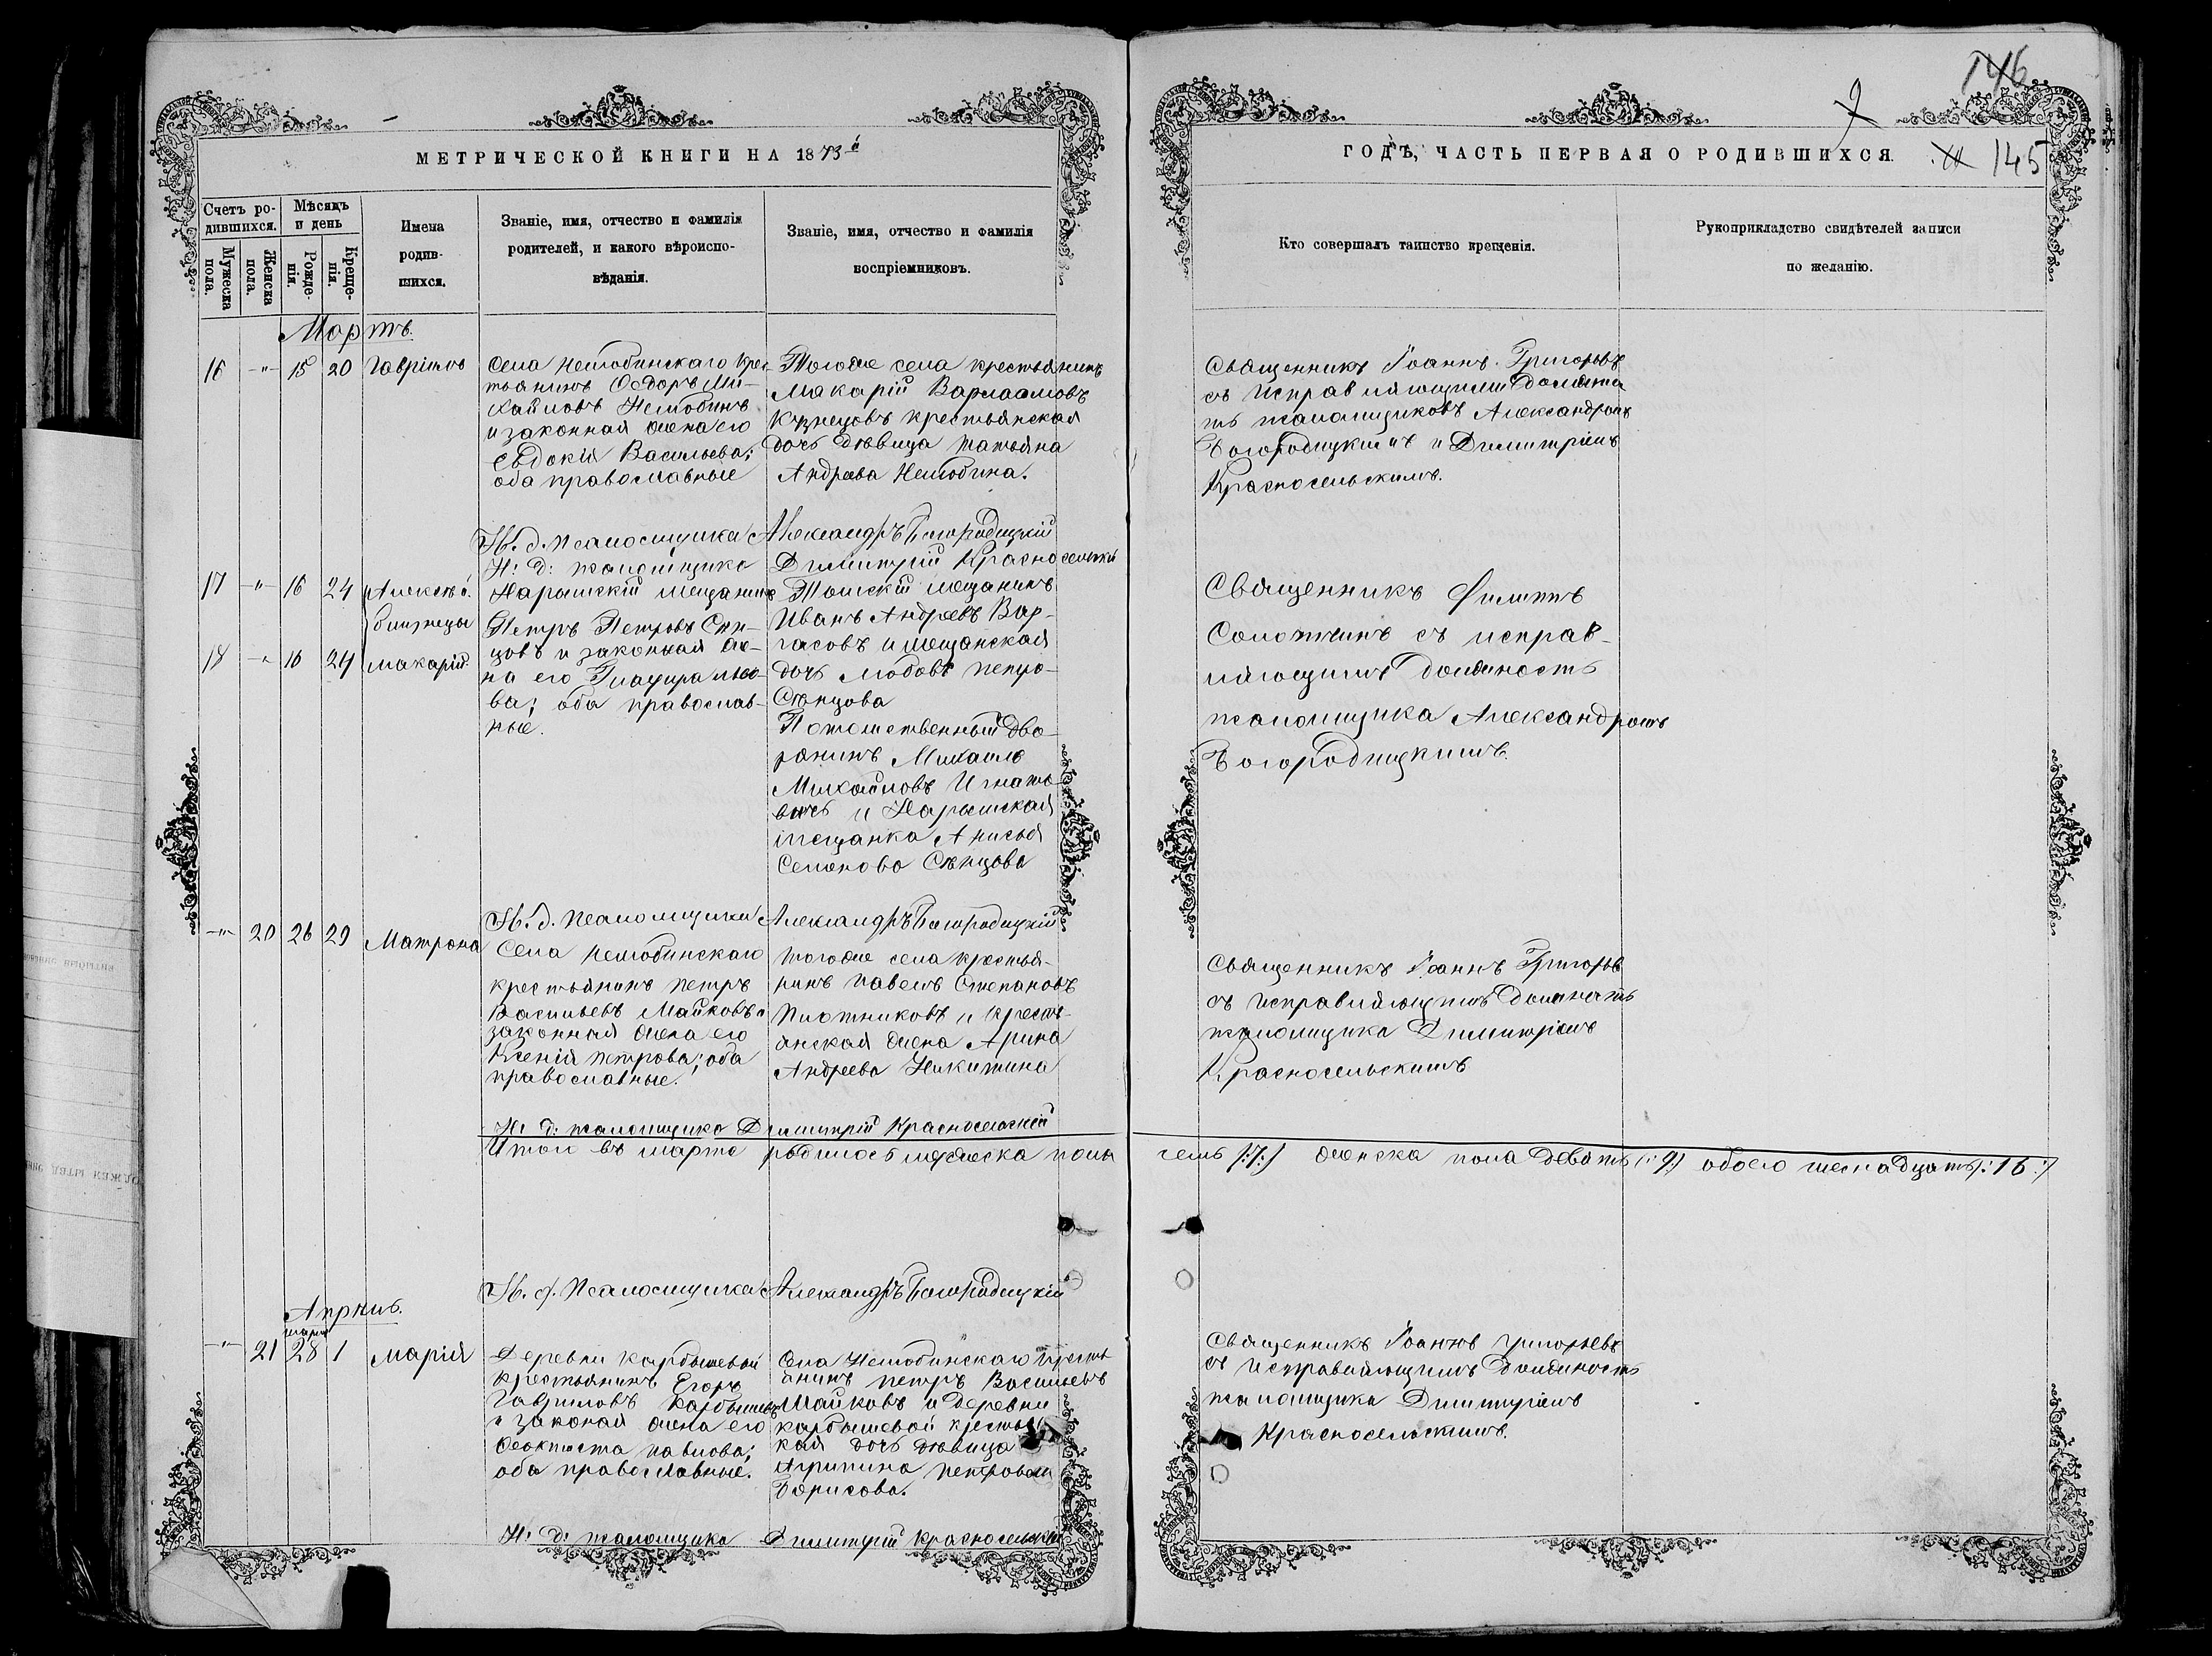 146
9
145
МЕТРИЧЕСКОЙ КНИГИ НА 1873й
ГОДЪ, ЧАСТЬ ПЕРВАЯ О РОДИВШИХСЯ.
Счетъ ро-
дившихся.
Мужеска
пола.
Женска
пола.
Мѣсяцъ
и день
Рожде-
нія.
Креще-
нія.
Имена
родив-
шихся.
Званіе, имя, отчество и фамилія
родителей, и какого вѣроиспо-
вѣданія.
Званіе, имя, отчество и фамилія
воспріемниковъ.
Кто совершалъ таинство крещенія.
Рукоприкладство свидѣтелей записи
по желанію.
Мартъ.
16 -"- 15 20 Гавріилъ
Села Нелюбинскаго крес
тьянинъ Ѳедоръ Ми-
хайловъ Нелюбинъ
и законная жена его
Евдокія Васильева;
оба православные
Тогоже села крестьянинъ
Макарій Варлаамовъ
Кузнецовъ крестьянская
дочь дѣвица татьяна
Андреева Нелюбина.
Священникъ Іоаннъ Григорьевъ
съ исправляющими должнос
ть псаломщиковъ Александромъ
Богородицкимъ и Димитріемъ
Красносельскимъ.
И. д. псаломщика Александръ Богородицкій
И: д: псаломщика Димитрій Красносельскій
17 -"- 16 24 Алексѣй.
близнецы
18 -"- 16 24 Макарій.
Нарымскій мещанинъ
Петръ Петровъ Сѣн-
цовъ и законная же-
на его Глафира Льво-
ва; оба православ-
ные.
Томскій мещанинъ
Иванъ Андреевъ Вар-
гасовъ и мещанская
дочь любовь петро-
Сѣнцова
Потомственный дво-
рянинъ Михаилъ
Михайловъ Игнато-
вичъ и Нарымская
мещанка Анисья
Семенова Сѣнцова
Священникъ Филиппъ
съ исправ-
ляющимъ должность
псаломщика Александромъ
Богородицкимъ.
И. д. псаломщика Александръ Богородицкій
-"- 20 26 29 Матрона
Села Нелюбинскаго
крестьянинъ петръ
Васильевъ Майковъ и
законная жена его
Ксенія петрова; оба
православные.
тогоже села крестья-
нинъ павелъ Степановъ
Плотниковъ и кресть-
янская жена Арина
Андреева Никитина
Священникъ Іоаннъ Григорьевъ
съ исправляющимъ должность
псаломщика Димитріемъ
Красносельскимъ
И: д: псаломщика Димитрій Красносельскій
Итого въ марте родилось мужеска пола семь /:7:/ женска пола девять (:9:) обоего шеснадцать /:16:/
И. д. Псаломщика Александръ Богородицкій
Апрѣль.
марта
-"- 21 28 1 Марія
Деревни карбышевой
крестьянинъ Егоръ
Гавриловъ Карбышевъ
и законая жена его
Ѳеоктиста павлова;
оба православные.
Села Нелюбинскаго кресть
янинъ петръ Васильевъ
Майковъ и деревни
карбышевой крестьянс
кая дочь дѣвица
Агрипина петровая
Борисова.
Священникъ Іоаннъ Григорьевъ
съ исправляющимъ должность
псаломщика Димитріемъ
Красносельскимъ.
И: д: псаломщика Димитрій Красносельскій